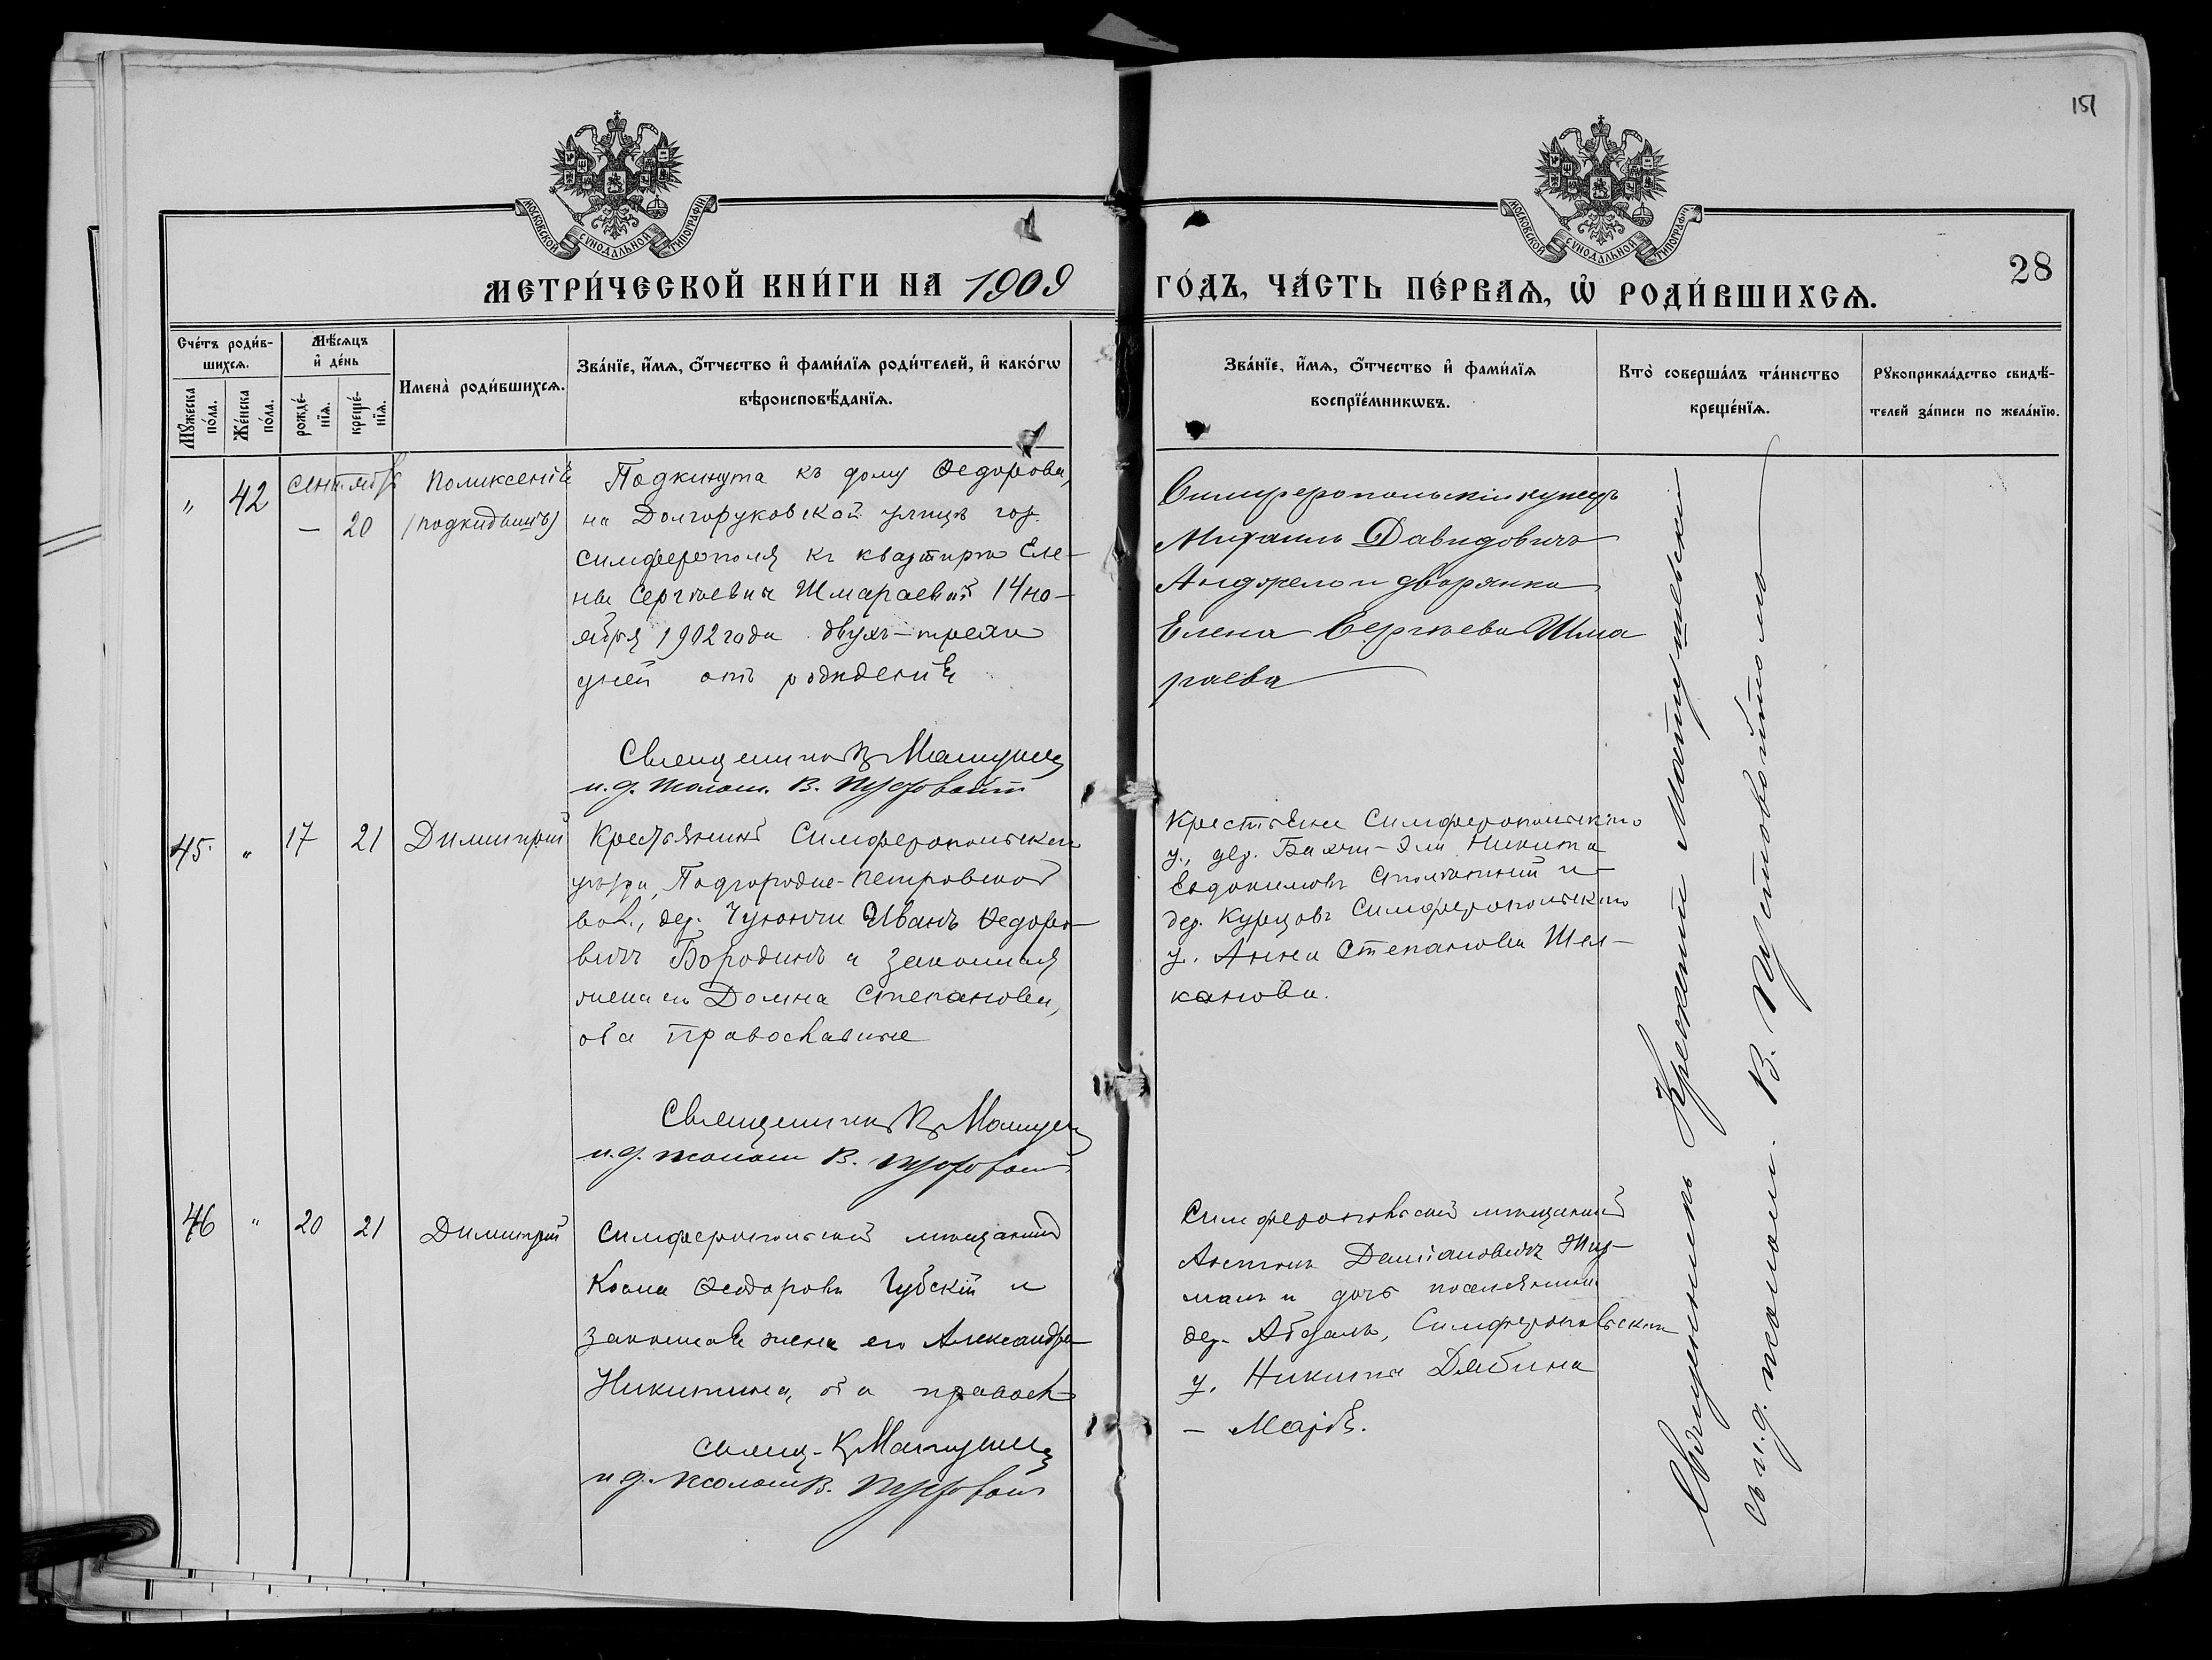 151
МОСКОВСКОЙ СѴНОДАЛЬНОЙ ТИПОГРАФІИ
МОСКОВСКОЙ СѴНОДАЛЬНОЙ ТИПОГРАФІИ
28
МЕТРИ́ЧЕСКОЙ КНИ́ГИ НА 1909 ГО́ДЪ, ЧА́СТЬ ПЕ́РВАѦ, Ѽ РОДИ́ВШИХСѦ.
Сче́тъ роди́в-
шихсѧ.
Мꙋ́жеска по́ла.
Же́нска по́ла.
Мѣ́сѧцъ
и҆ де́нь
рожде́-
нїѧ.
креще́-
нїѧ.
Имена̀ роди́вшихсѧ.
Зва́нїе, и҆́мѧ, ѻ҆́тчество и҆ фами́лїѧ роди́телей, и҆ како́гѡ
вѣроисповѣ́данїѧ.
Зва́нїе, и҆́мѧ, ѻ҆́тчество и҆ фами́лїѧ
воспрїе́мникѡвъ.
Кто̀ соверша́лъ та́инство
креще́нїѧ.
Рꙋкоприкла́дство свидѣ́-
телей за́писи по жела́нїю.
"
42
Сентябрь
— 20
Поликсенія
(подкидышъ)
Подкинута къ дому Ѳедорова,
на Долгоруковской улицѣ гор.
Симферополя къ квартирѣ Еле-
ны Сергѣевны Шмараевой 14 но-
ября 1902 года двухъ-трехъ
дней отъ рожденія
Священникъ К Матушев
и. д. псалом. В. Пустовойт
Симферопольскій купецъ
Михаилъ Давидовичъ
Анджело и дворянка
Елена Сергѣева Шма
раева
45.
"
17
21
Димитрій
Крестьянинъ Симферопольскаго
уѣзда, Подгородне-Петровской
вол., дер. Чуюнчи Иванъ Ѳедоро-
вичъ Бородинъ и законная
жена его Домна Степановна,
оба православные
Священникъ К Матушев
и. д. псалом В. Пустовойт
Крестьяне Симферопольскаго
у., дер. Бахчи-Эли Никита
Евдокимовъ и
дер. Курцовъ Симферопольскаго
у. Анна Степановна Шел-
канова.
46
"
20
21
Димитрій
Симферопольскій мѣщанинъ
Косма Ѳеодоровъ Губскій и
законная жена его Александра
Никитина, оба правосл
Свящ. К Матушев
и д. псалом В. Пустовойт
Симферопольскій мѣщанинъ
Даміановичъ
и дочь поселянина
дер. Абдалъ, Симферопольскаго
у. Никиты Дябина
— Марія.
Священникъ Крискентъ Матушевскій
съ и. д. псалом. В. Пустовойтомъ